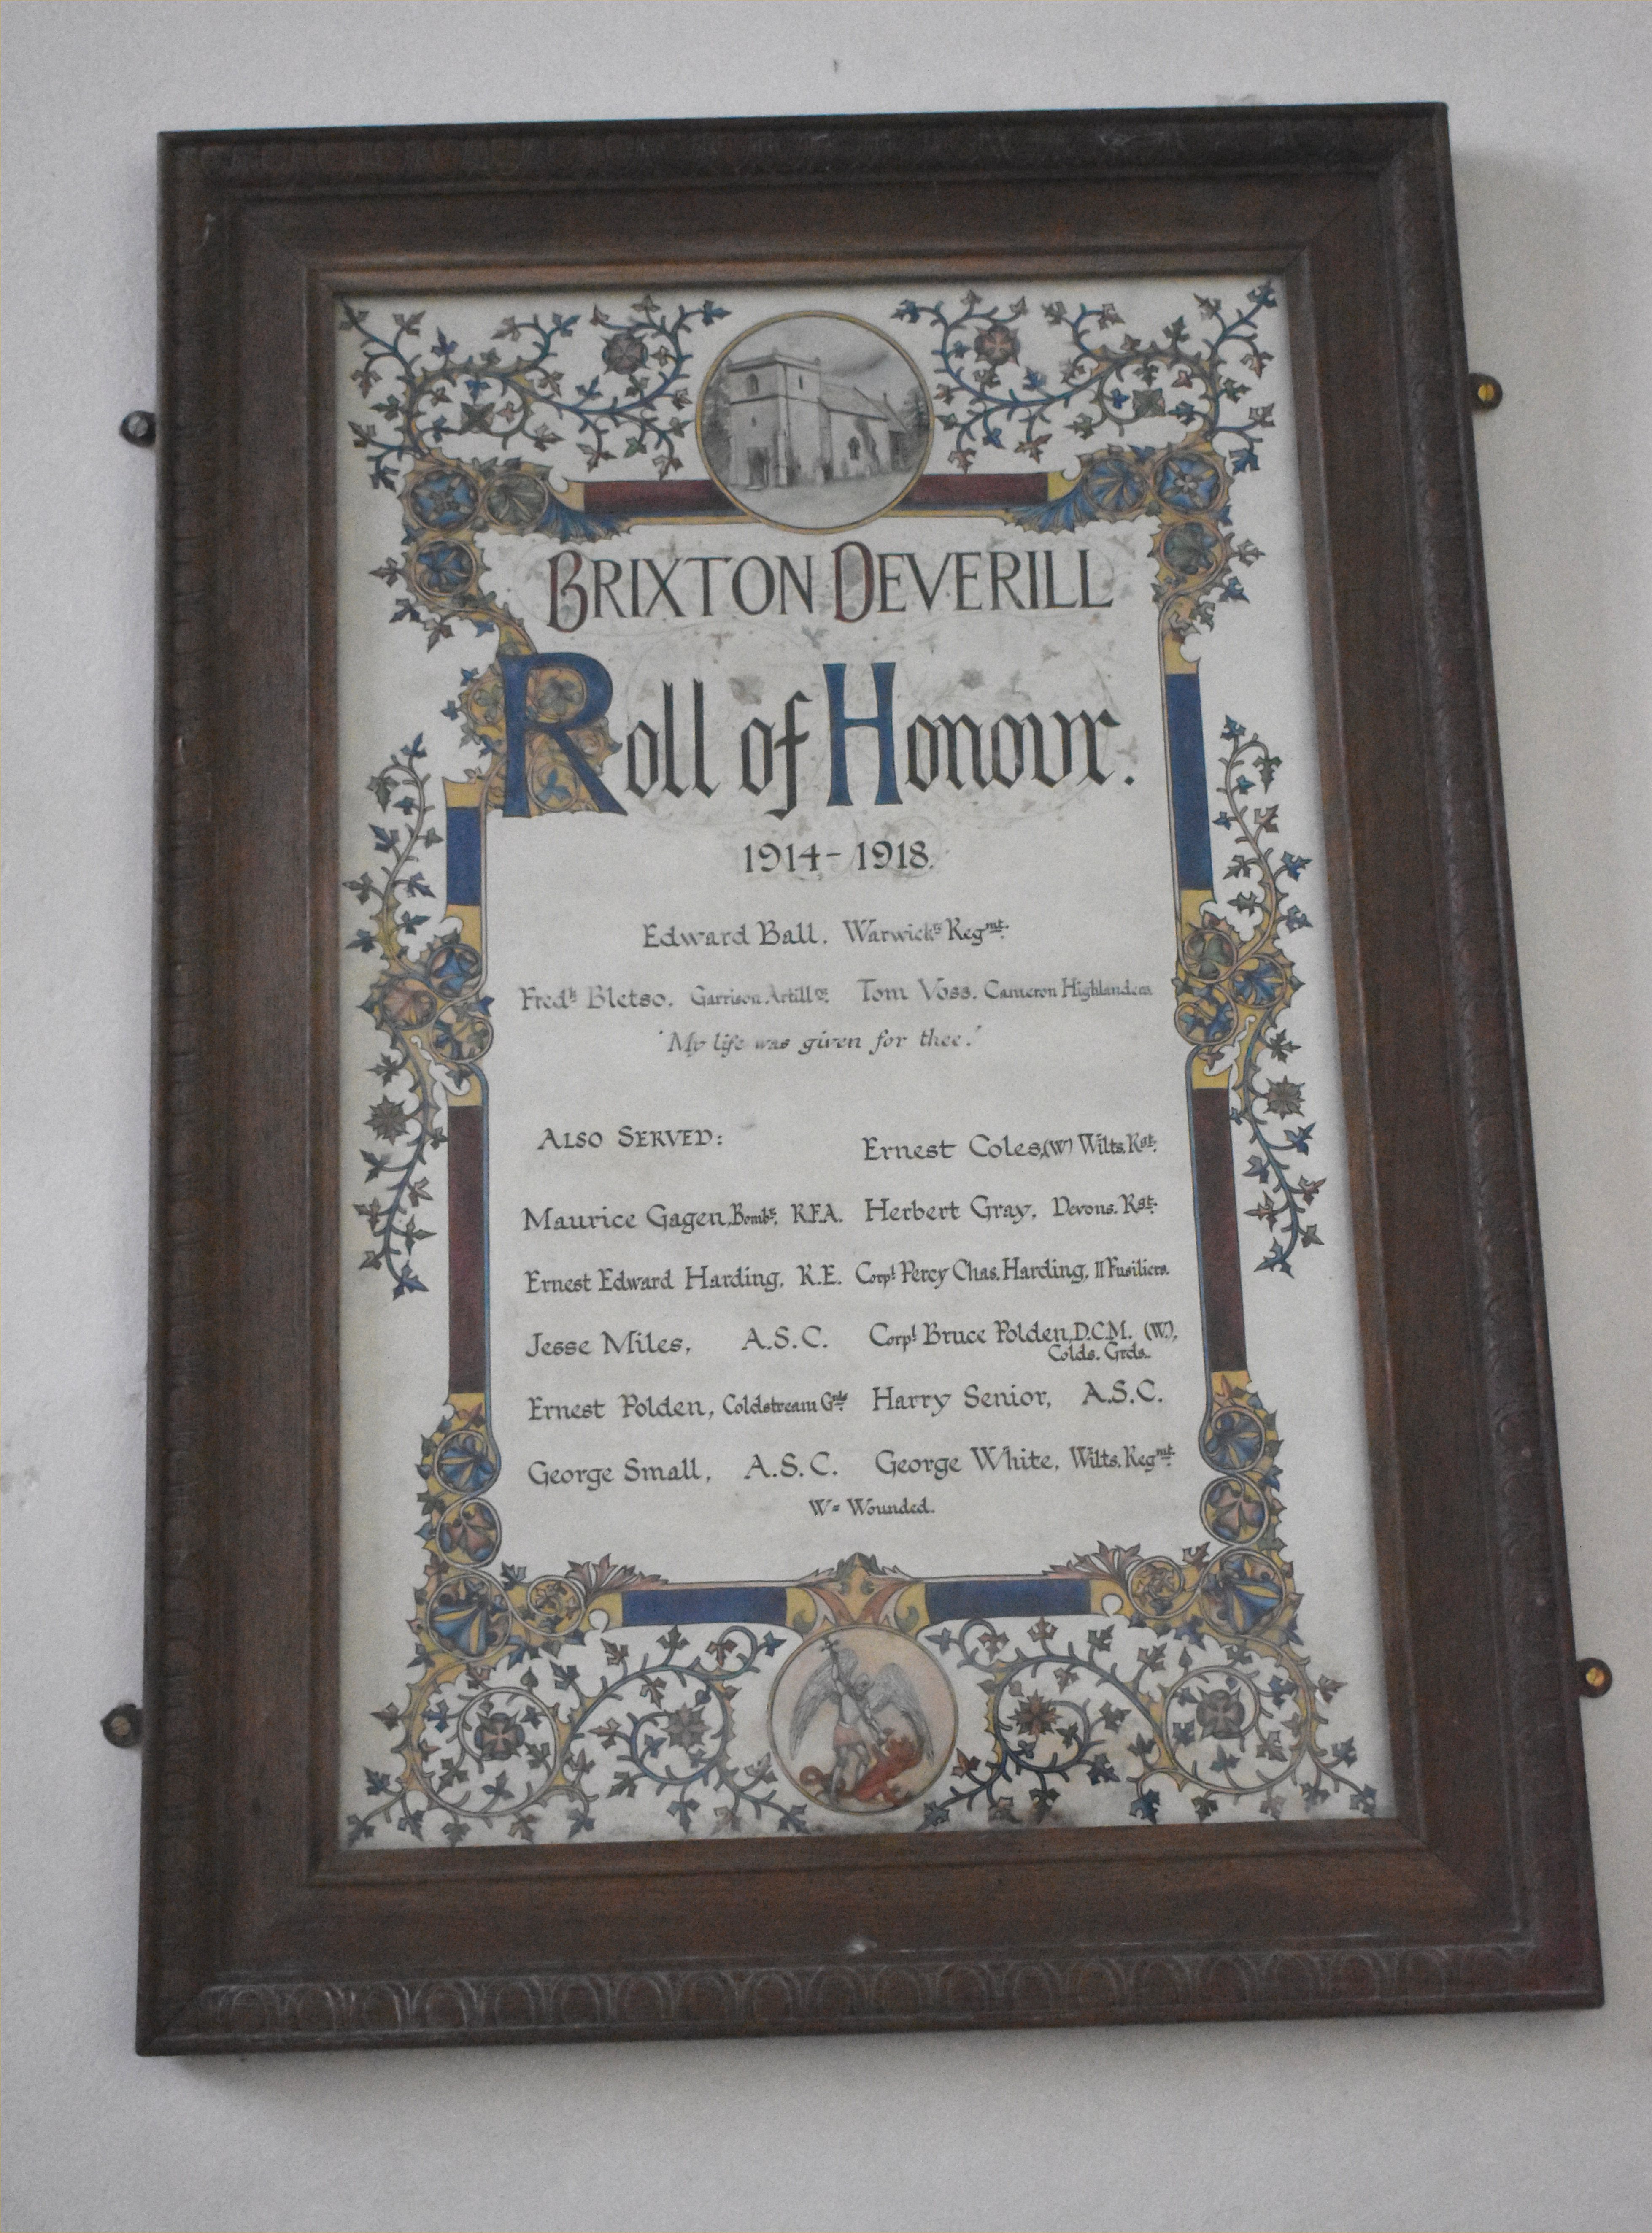 BRIXTON DEVERILL
Roll of Honour.
1914 - 1918.
Edward Ball. Warwicks Regmt.
Fredk Bletso. Garrison Artilly. Tom Voss. Cameron Highlanders.
'My life was given for thee.'
ALSO SERVED: Ernest Coles,(W) Wilts. Rgt.
Maurice Gagen, Bombr. R.F.A. Herbert Gray, Devons. Rgt.
Ernest Edward Harding, R.E. Corpl Percy Chas. Harding, II Fusiliers.
Jesse Miles, A.S.C. Corpl Bruce Polden, D.C.M. (W.),
Colds. Grds.
Ernest Polden, Coldstream Grds. Harry Senior, A.S.C.
George Small, A.S.C. George White, Wilts. Regmt.
W = Wounded.